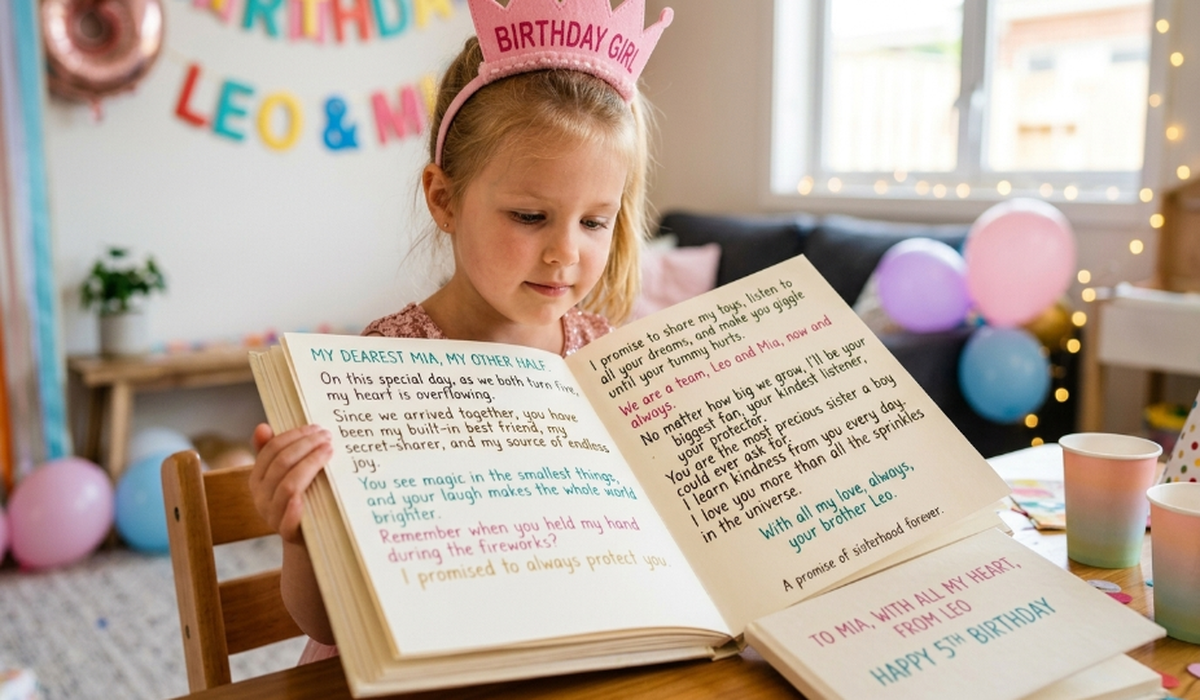 BIRTHDAY
LEO &
BIRTHDAY GIRL
MY DEAREST MIA, MY OTHER HALF.
On this special day, as we both turn five,
my heart is overflowing.
Since we arrived together, you have
been my built-in best friend, my
secret-sharer, and my source of endless
joy.
You see magic in the smallest things,
and your laugh makes the whole world
brighter.
Remember when you held my hand
during the fireworks?
I promised to always protect you.
I promise to share my toys, listen to
all your dreams, and make you giggle
until your tummy hurts.
We are a team, Leo and Mia, now and
always.
No matter how big we grow, I'll be your
biggest fan, your kindest listener,
your protector.
You are the most precious sister a boy
could ever ask for.
I learn kindness from you every day.
I love you more than all the sprinkles
in the universe.
With all my love, always,
your brother Leo.
A promise of sisterhood forever.
TO MIA, WITH ALL MY HEART,
FROM LEO
HAPPY 5TH BIRTHDAY